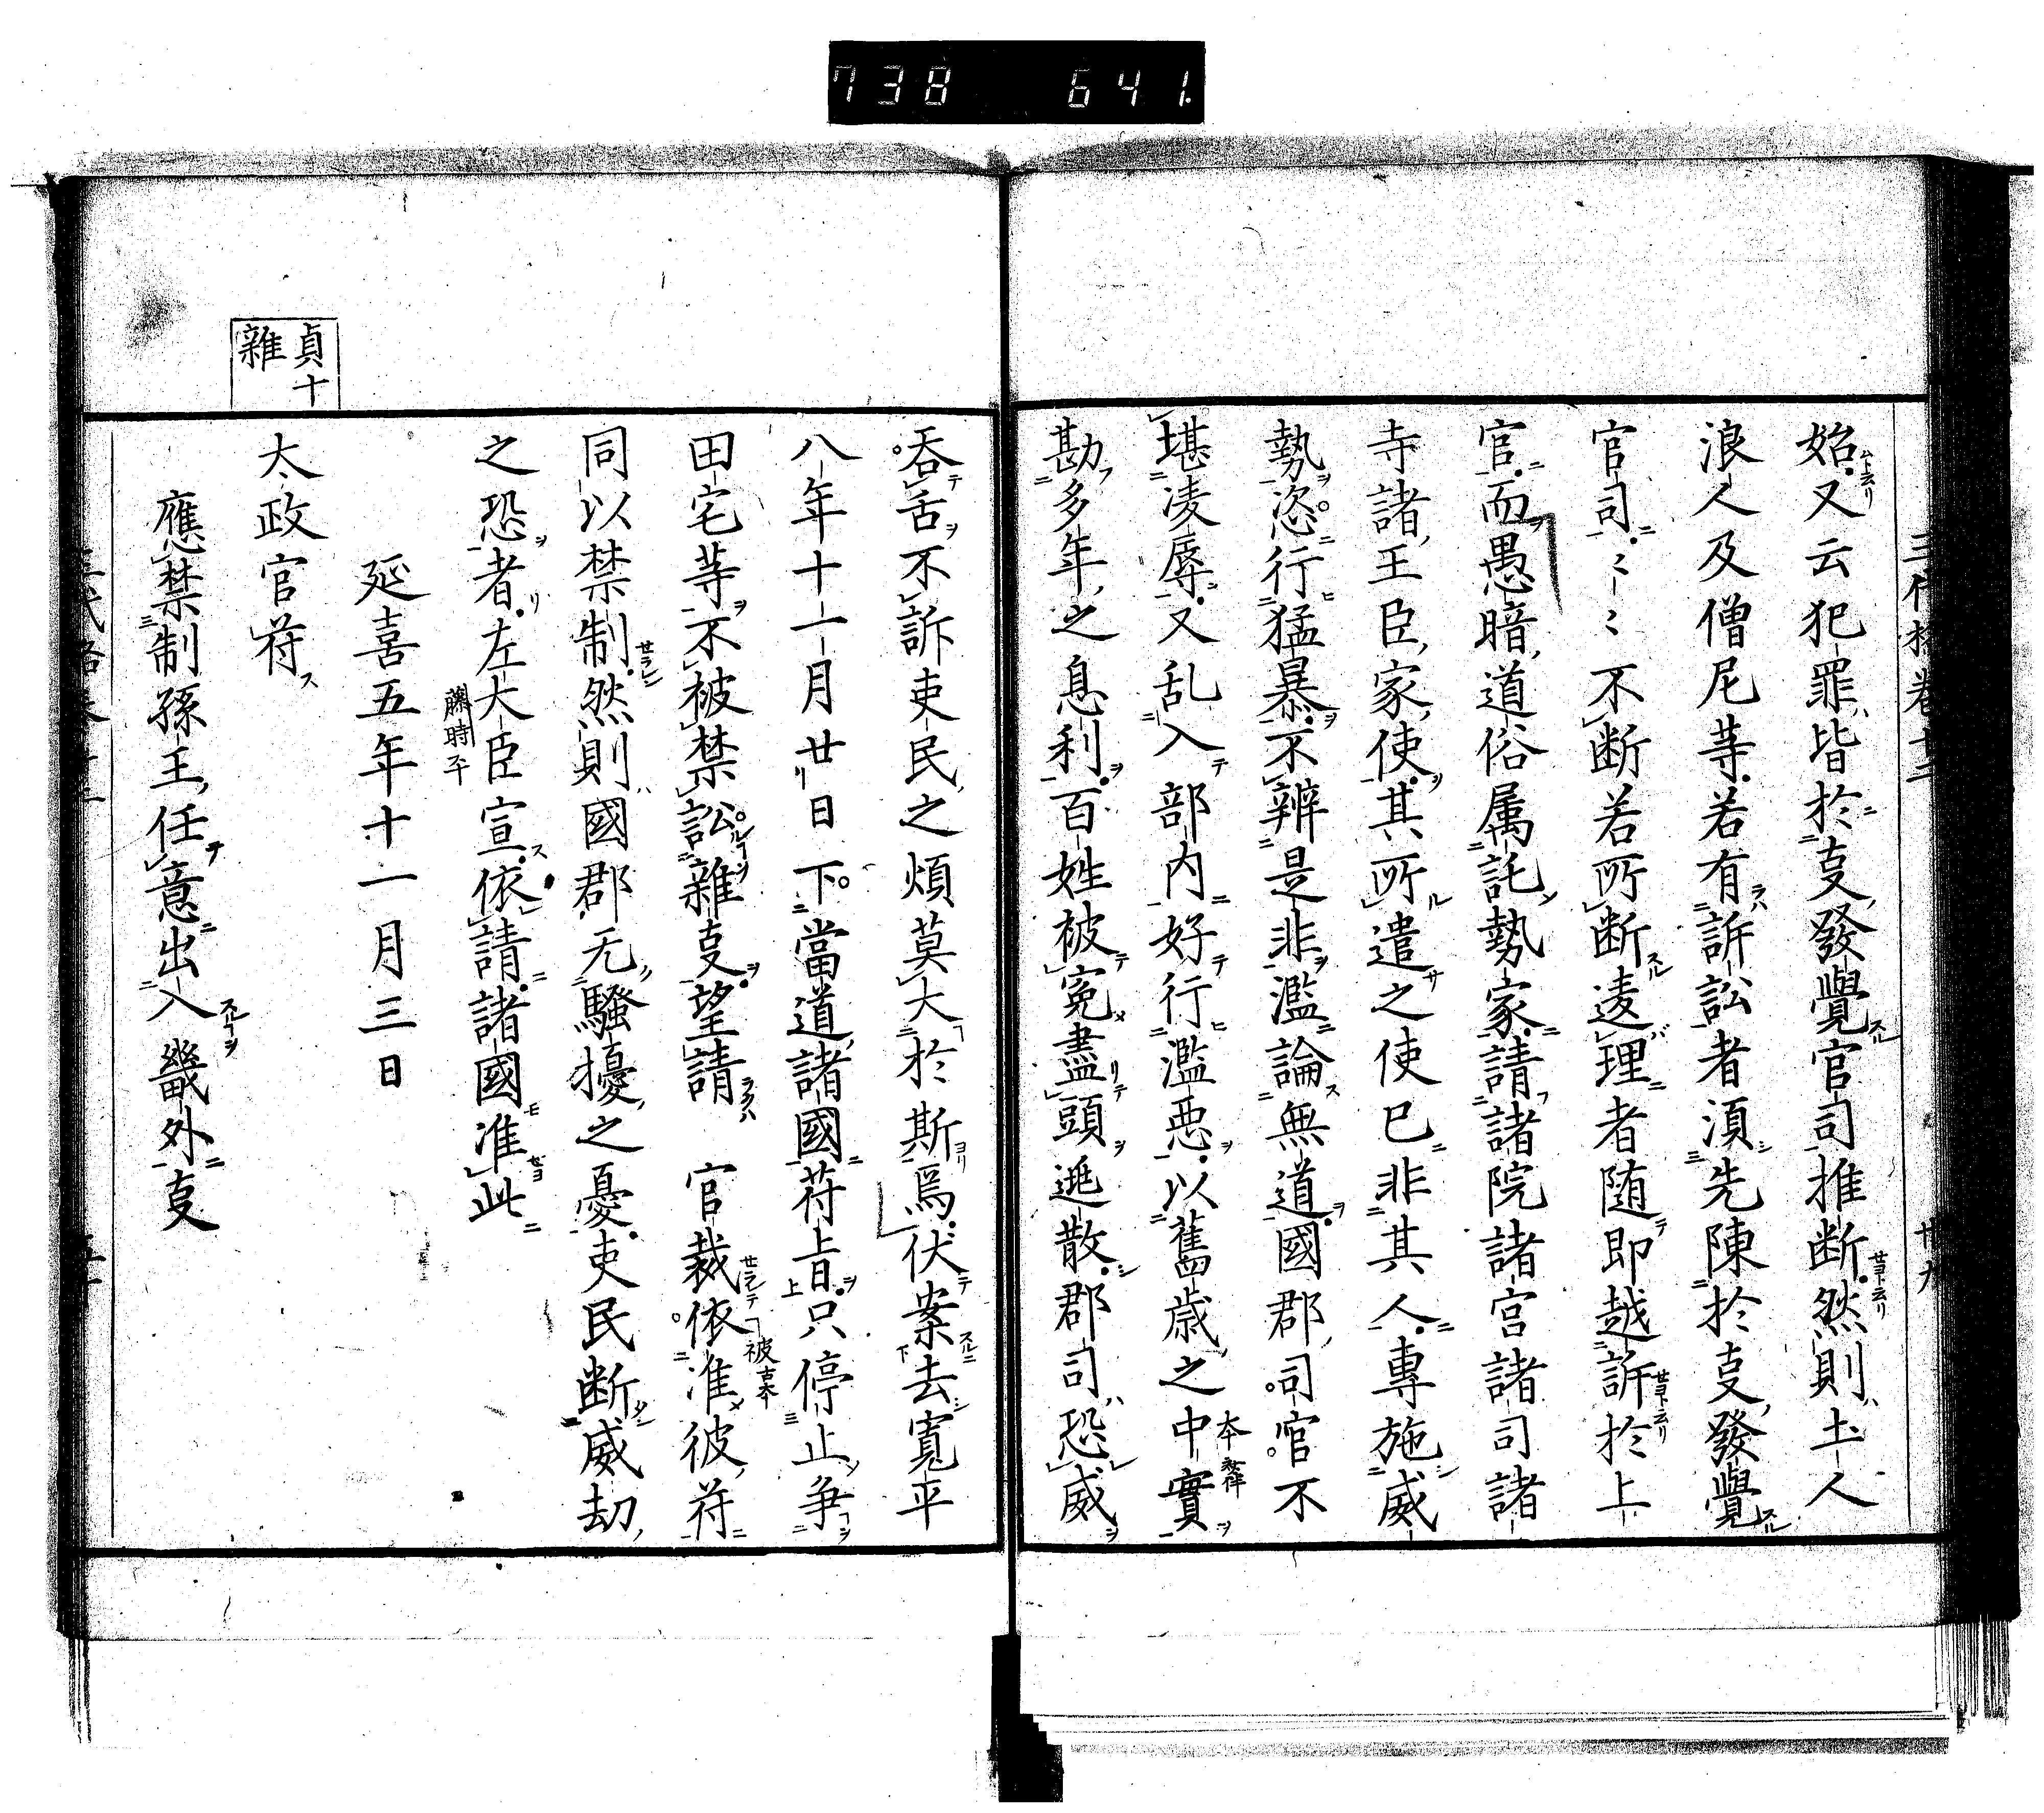 738 641.
始又云犯罪皆於㕝發覺官司推断然則土人
浪人及僧尼䓁若有訴訟者湏先陳於㕝發覺
官司〻〻不断若所断逺理者随即越訴於上
官而愚暗道俗属託勢家請諸院諸宮諸司諸
寺諸王臣家使其所遣之使已非其人專施威
勢恣行猛暴不辨是非濫論無道國郡司官不
堪凌辱又乱入部内好行濫悪以舊歳之中實
勘多年之息利百姓被寃盡頭逃散郡司恐威
吞舌不訴吏民之煩莫大於斯焉伏案去寛平
八年十一月廿日下當道諸國苻偁只停止争
田宅䓁不被禁訟雜㕝望請 官裁依准彼苻
同以禁制然則國郡无騷擾之憂吏民断威劫
之恐者左大臣宣依請諸國准此
藤時平
延喜五年十一月三日
貞十
雜
太政官苻
應禁制孫王任意出入畿外㕝